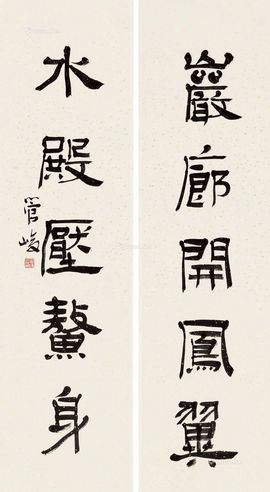 巖廊開鳳翼
水殿壓鼇身
管峻